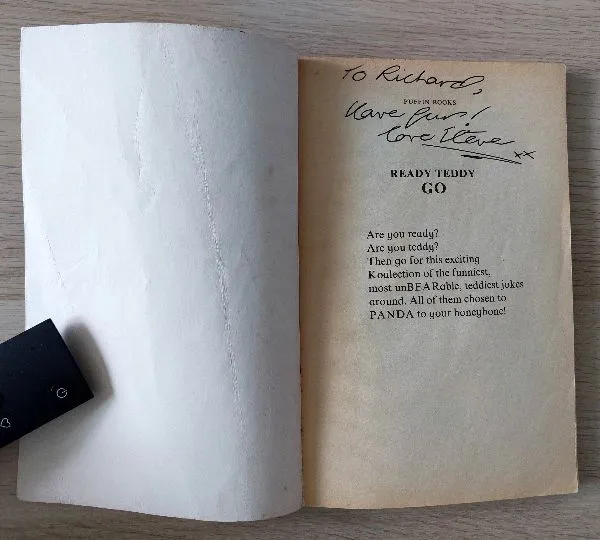 To Richard,
PUFFIN BOOKS
Have fun!
love Steve xx
READY TEDDY
GO
Are you ready?
Are you teddy?
Then go for this exciting
Koulection of the funniest,
most unBEARable, teddiest jokes
around. All of them chosen to
PANDA to your honeybone!